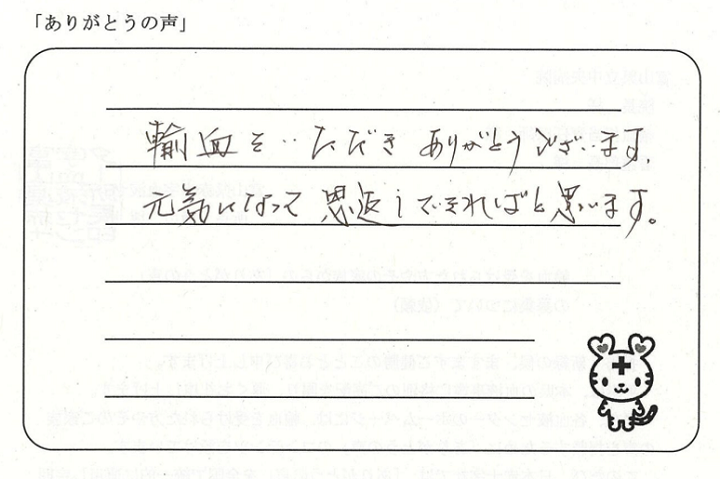 「ありがとうの声」
輸血をいただきありがとうございます。
元気になって恩返しできればと思います。